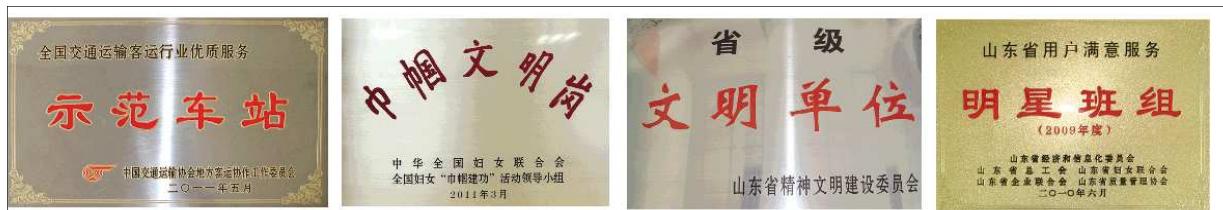 全国交通运输客运行业优质服务
示范车站
中国交通运输协会地方客运协作工作委员会
二〇一一年五月
巾帼文明岗
中华全国妇女联合会
全国妇女“巾帼建功”活动领导小组
2011年3月
省级
文明单位
山东省精神文明建设委员会
山东省用户满意服务
明星班组
(2009年度)
山东省经济和信息化委员会
山东省总工会 山东省妇女联合会
山东省企业联合会 山东省质量管理协会
二〇一〇年六月